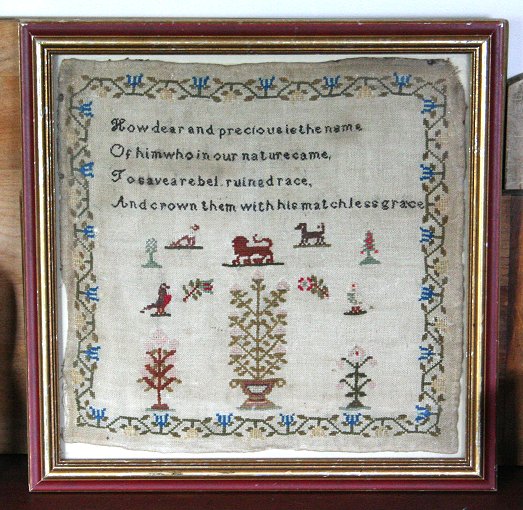 How dear and precious is the name
Of him who in our nature came,
To save a rebel ruined race,
And crown them with his matchless grace